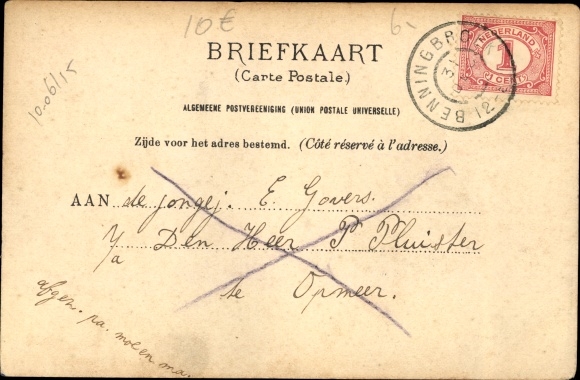 10€
6.
10.06/15
BRIEFKAART
(Carte Postale.)
ALGEMEENE POSTVEREENIGING (UNION POSTALE UNIVERSELLE)
Zijde voor het adres bestemd. (Côté réservé à l'adresse.)
NEDERLAND
1
1 CENT
BENNINGBRO
AAN de jongej. E. Govers.
p/a Den Heer P Pluister
te Opmeer.
afgez. pa. moe en ma.